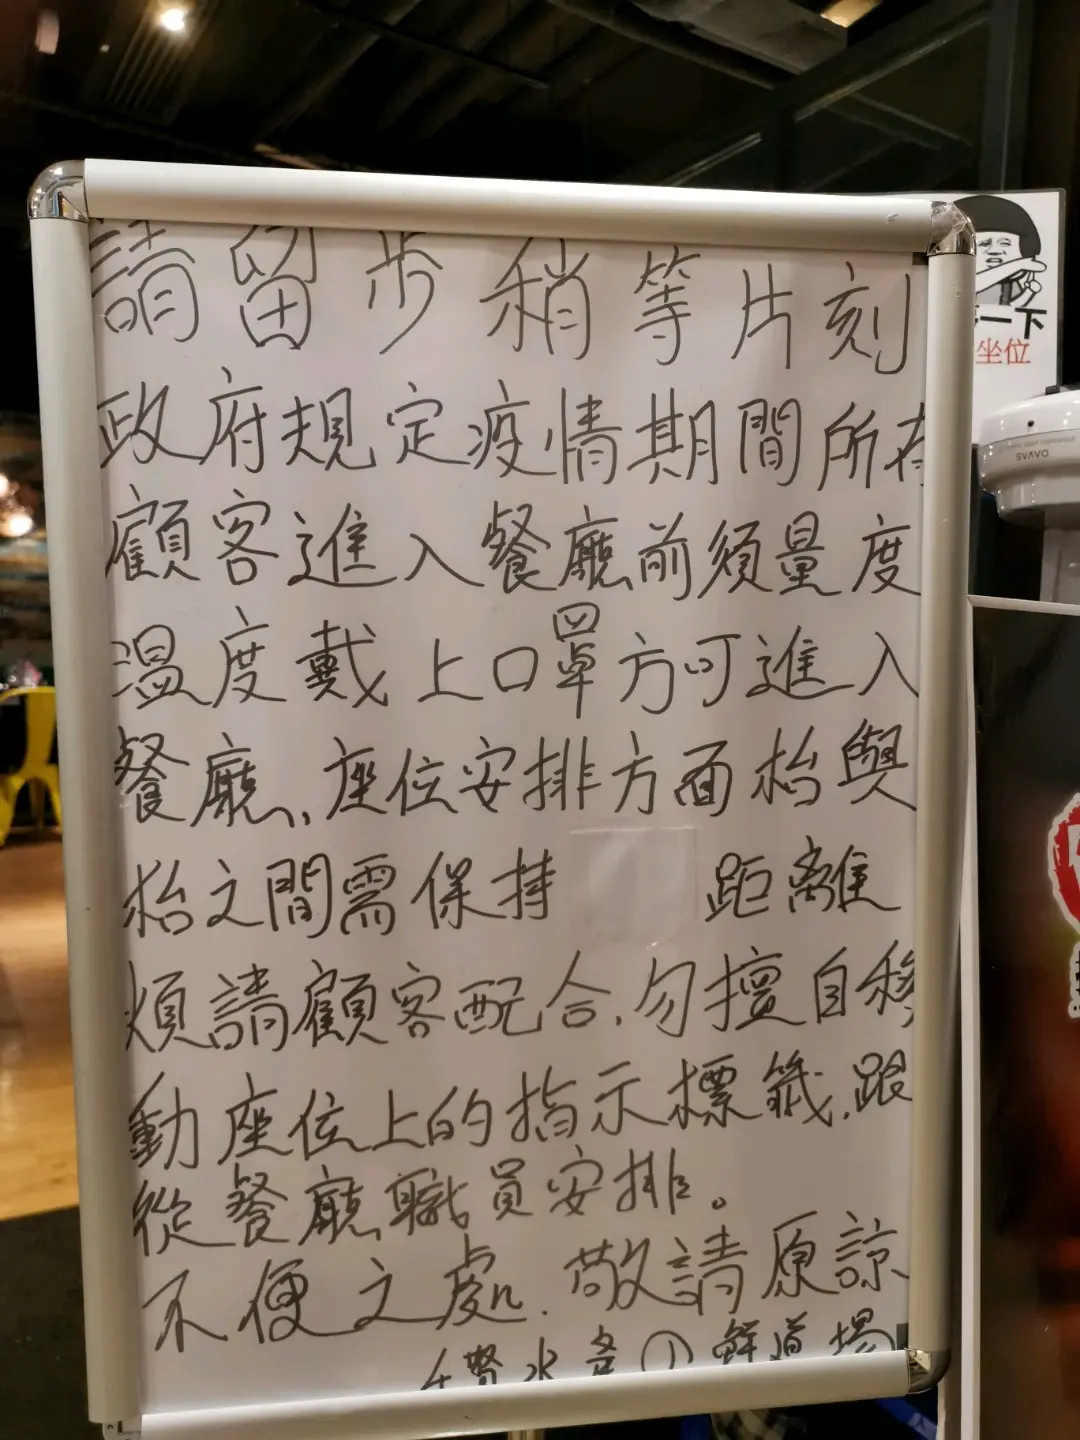 請留步稍等片刻
政府規定疫情期間所有
顧客進入餐廳前須量度
溫度戴上口罩方可進入
餐廳、座位安排方面枱與
枱之間需保持 距離
煩請顧客配合,勿擅自移
動座位上的指示標籤,跟
從餐廳職員安排。
不便之處,敬請原諒
水産の鮮道場
一下
坐位
SAVAO